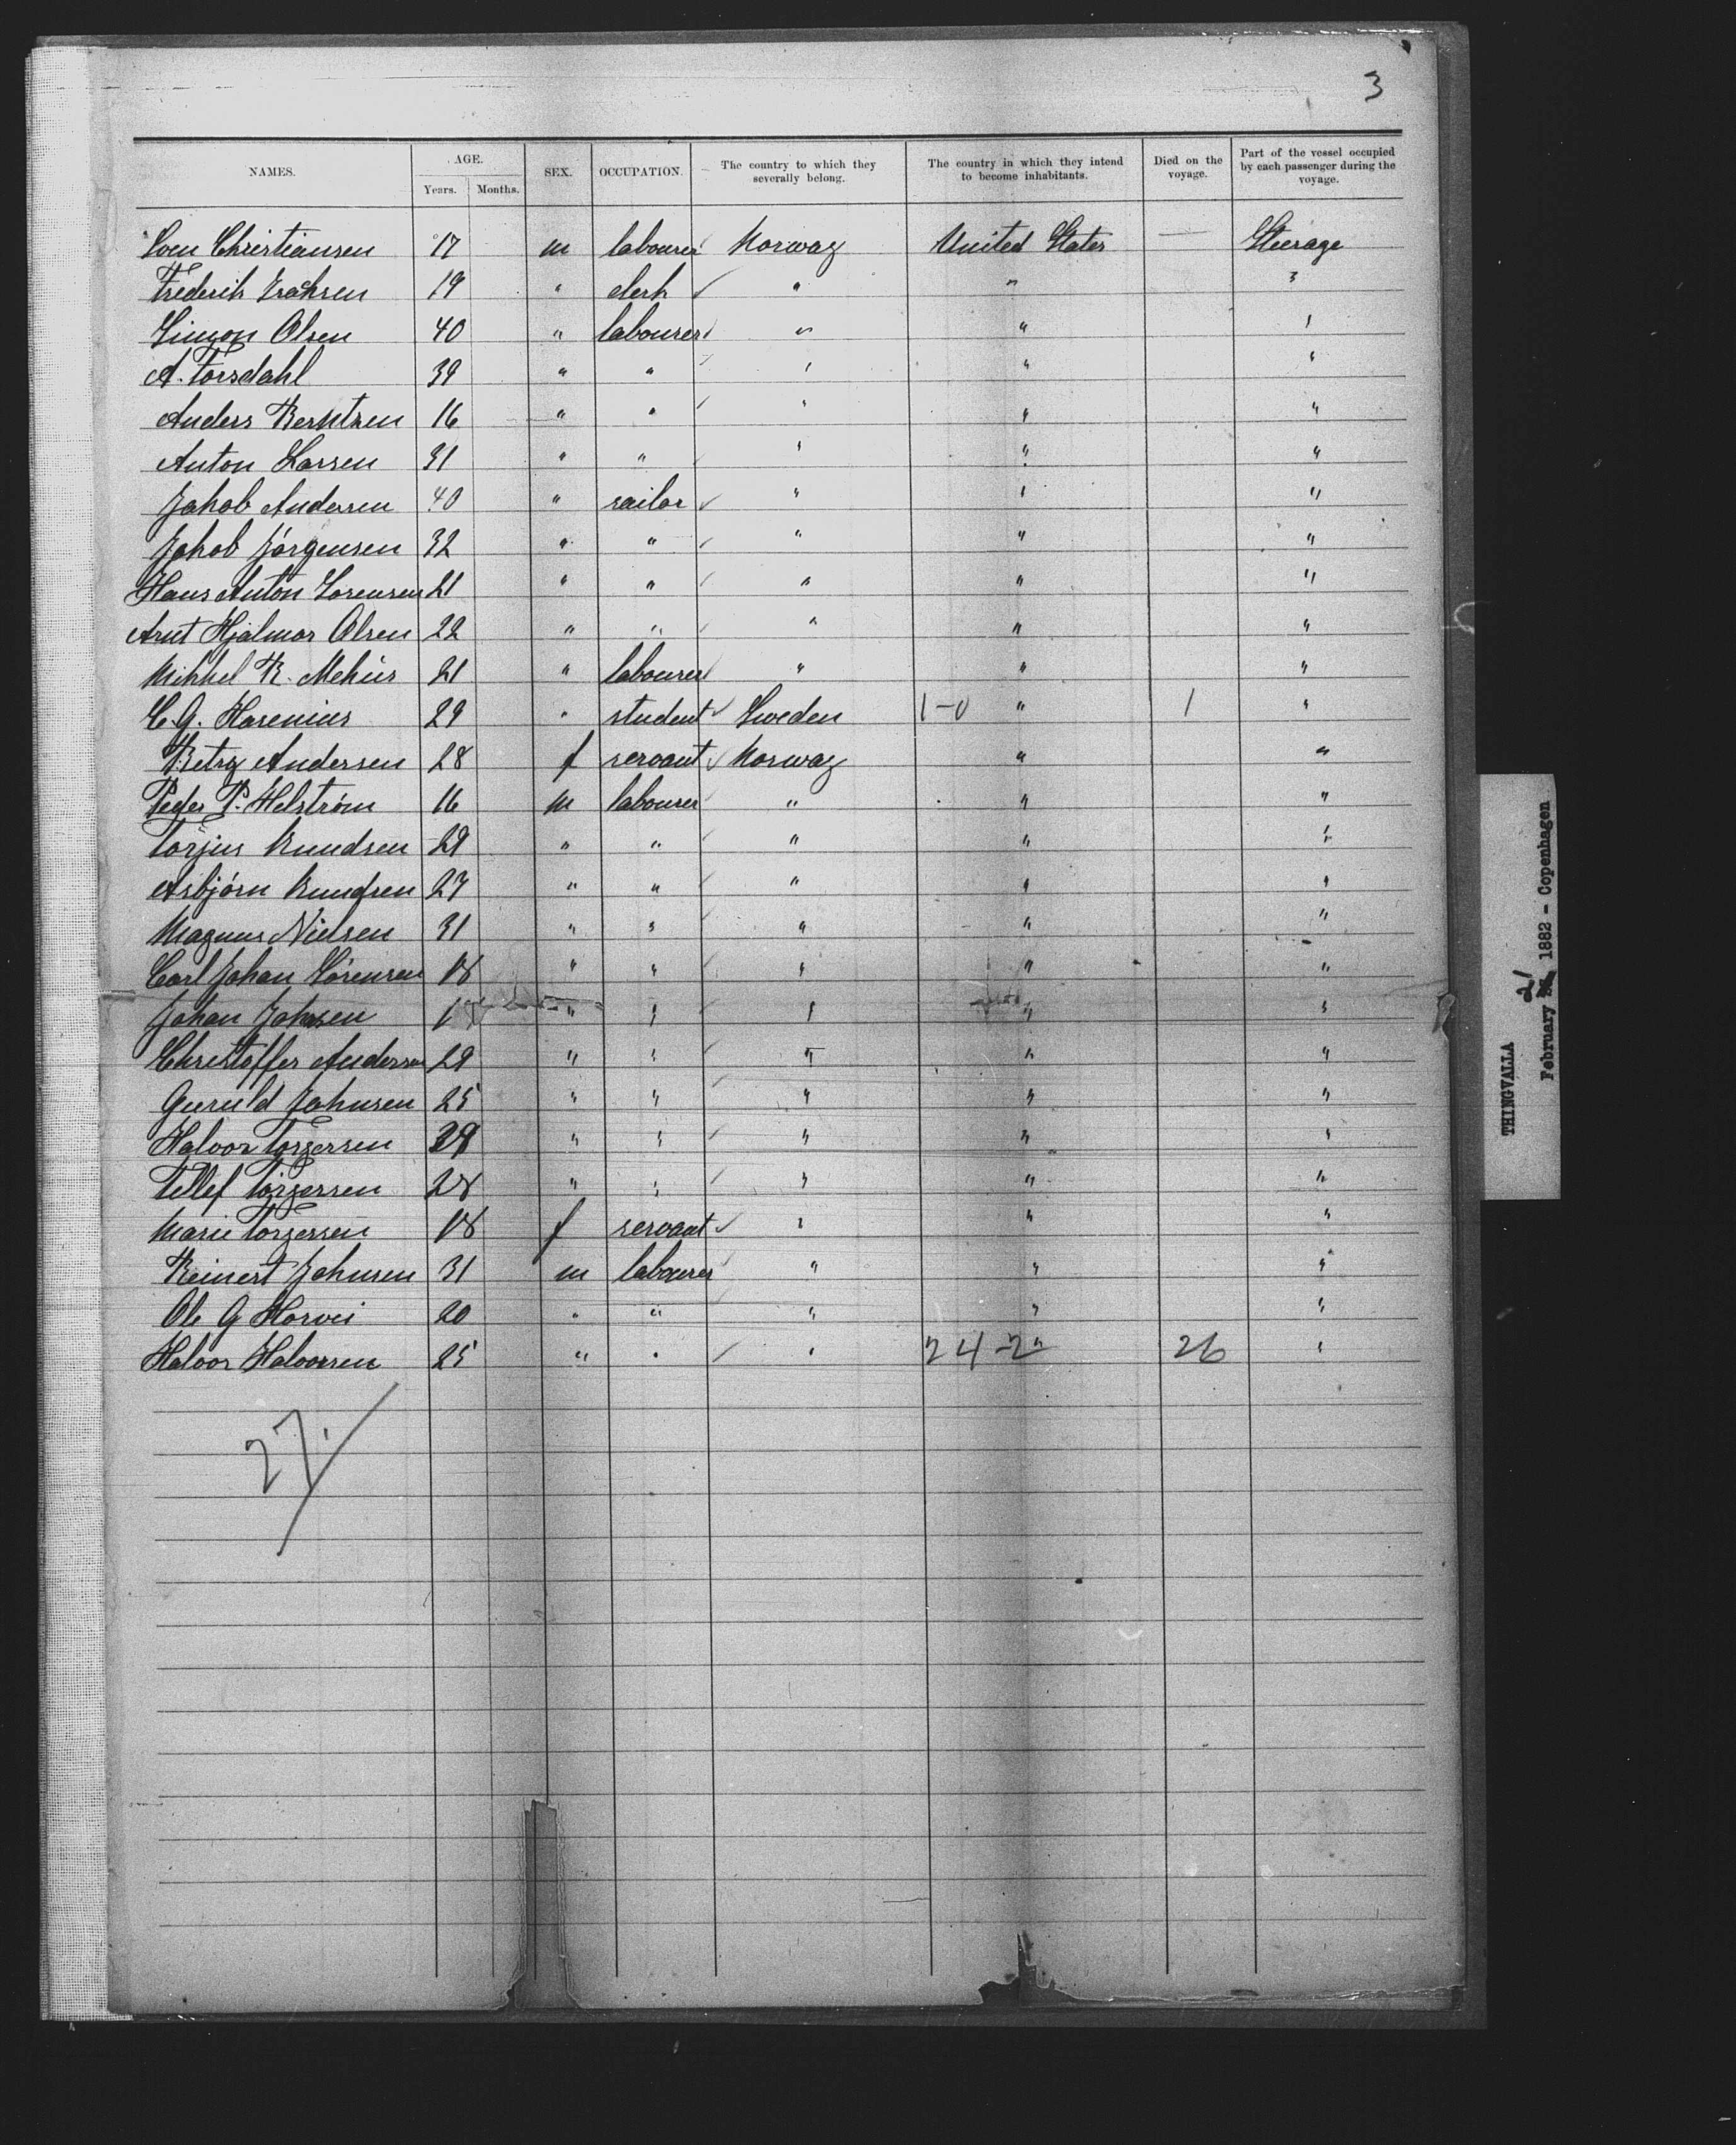 3
NAMES. AGE. Years. Months. SEX. OCCUPATION. The country to which they severally belong. The country in which they intend to become inhabitants. Died on the voyage. Part of the vessel occupied by each passenger during the voyage.
Sven Christiansen 17 m labourer Norway United States — Steerage
Frederik 19 " clerk " " "
Simon Olsen 40 " labourer " " "
A. Torsdahl 39 " " " " "
Anders Berntzen 16 " " " " "
Anton Larsen 31 " " " " "
Jakob Andersen 40 " sailor " " "
Jakob Jörgensen 32 " " " " "
Hans Anton Sorensen 21 " " " " "
Arnt Hjalmar Olsen 22 " " " " "
Mikkel B. Mehus 21 " labourer " " "
C. G. Hasenius 29 " student Sweden 1-0 " 1 "
Betzy Andersen 28 f servant Norway " "
Peder P. Helström 16 m labourer " " "
Torjus Knudsen 29 " " " " "
Asbjörn Knudsen 27 " " " " "
Magnus Nielsen 31 " " " " "
Carl Johan Sörensen 18 " " " " "
Johan Johnsen " " " " "
Christoffer Andersen 29 " " " " "
Guruld Johnsen 25 " " " " "
Halvor Torgersen 29 " " " " "
Tellef Torgersen 28 " " " " "
Marie Torgersen 18 f servant " " "
Reinert Johnsen 31 m labourer " " "
Ole G Horvei 20 " " " " "
Halvor Halvorsen 25 " " " 24-2 " 26 "
27.
THINGVALLA
February 21 1882 - Copenhagen